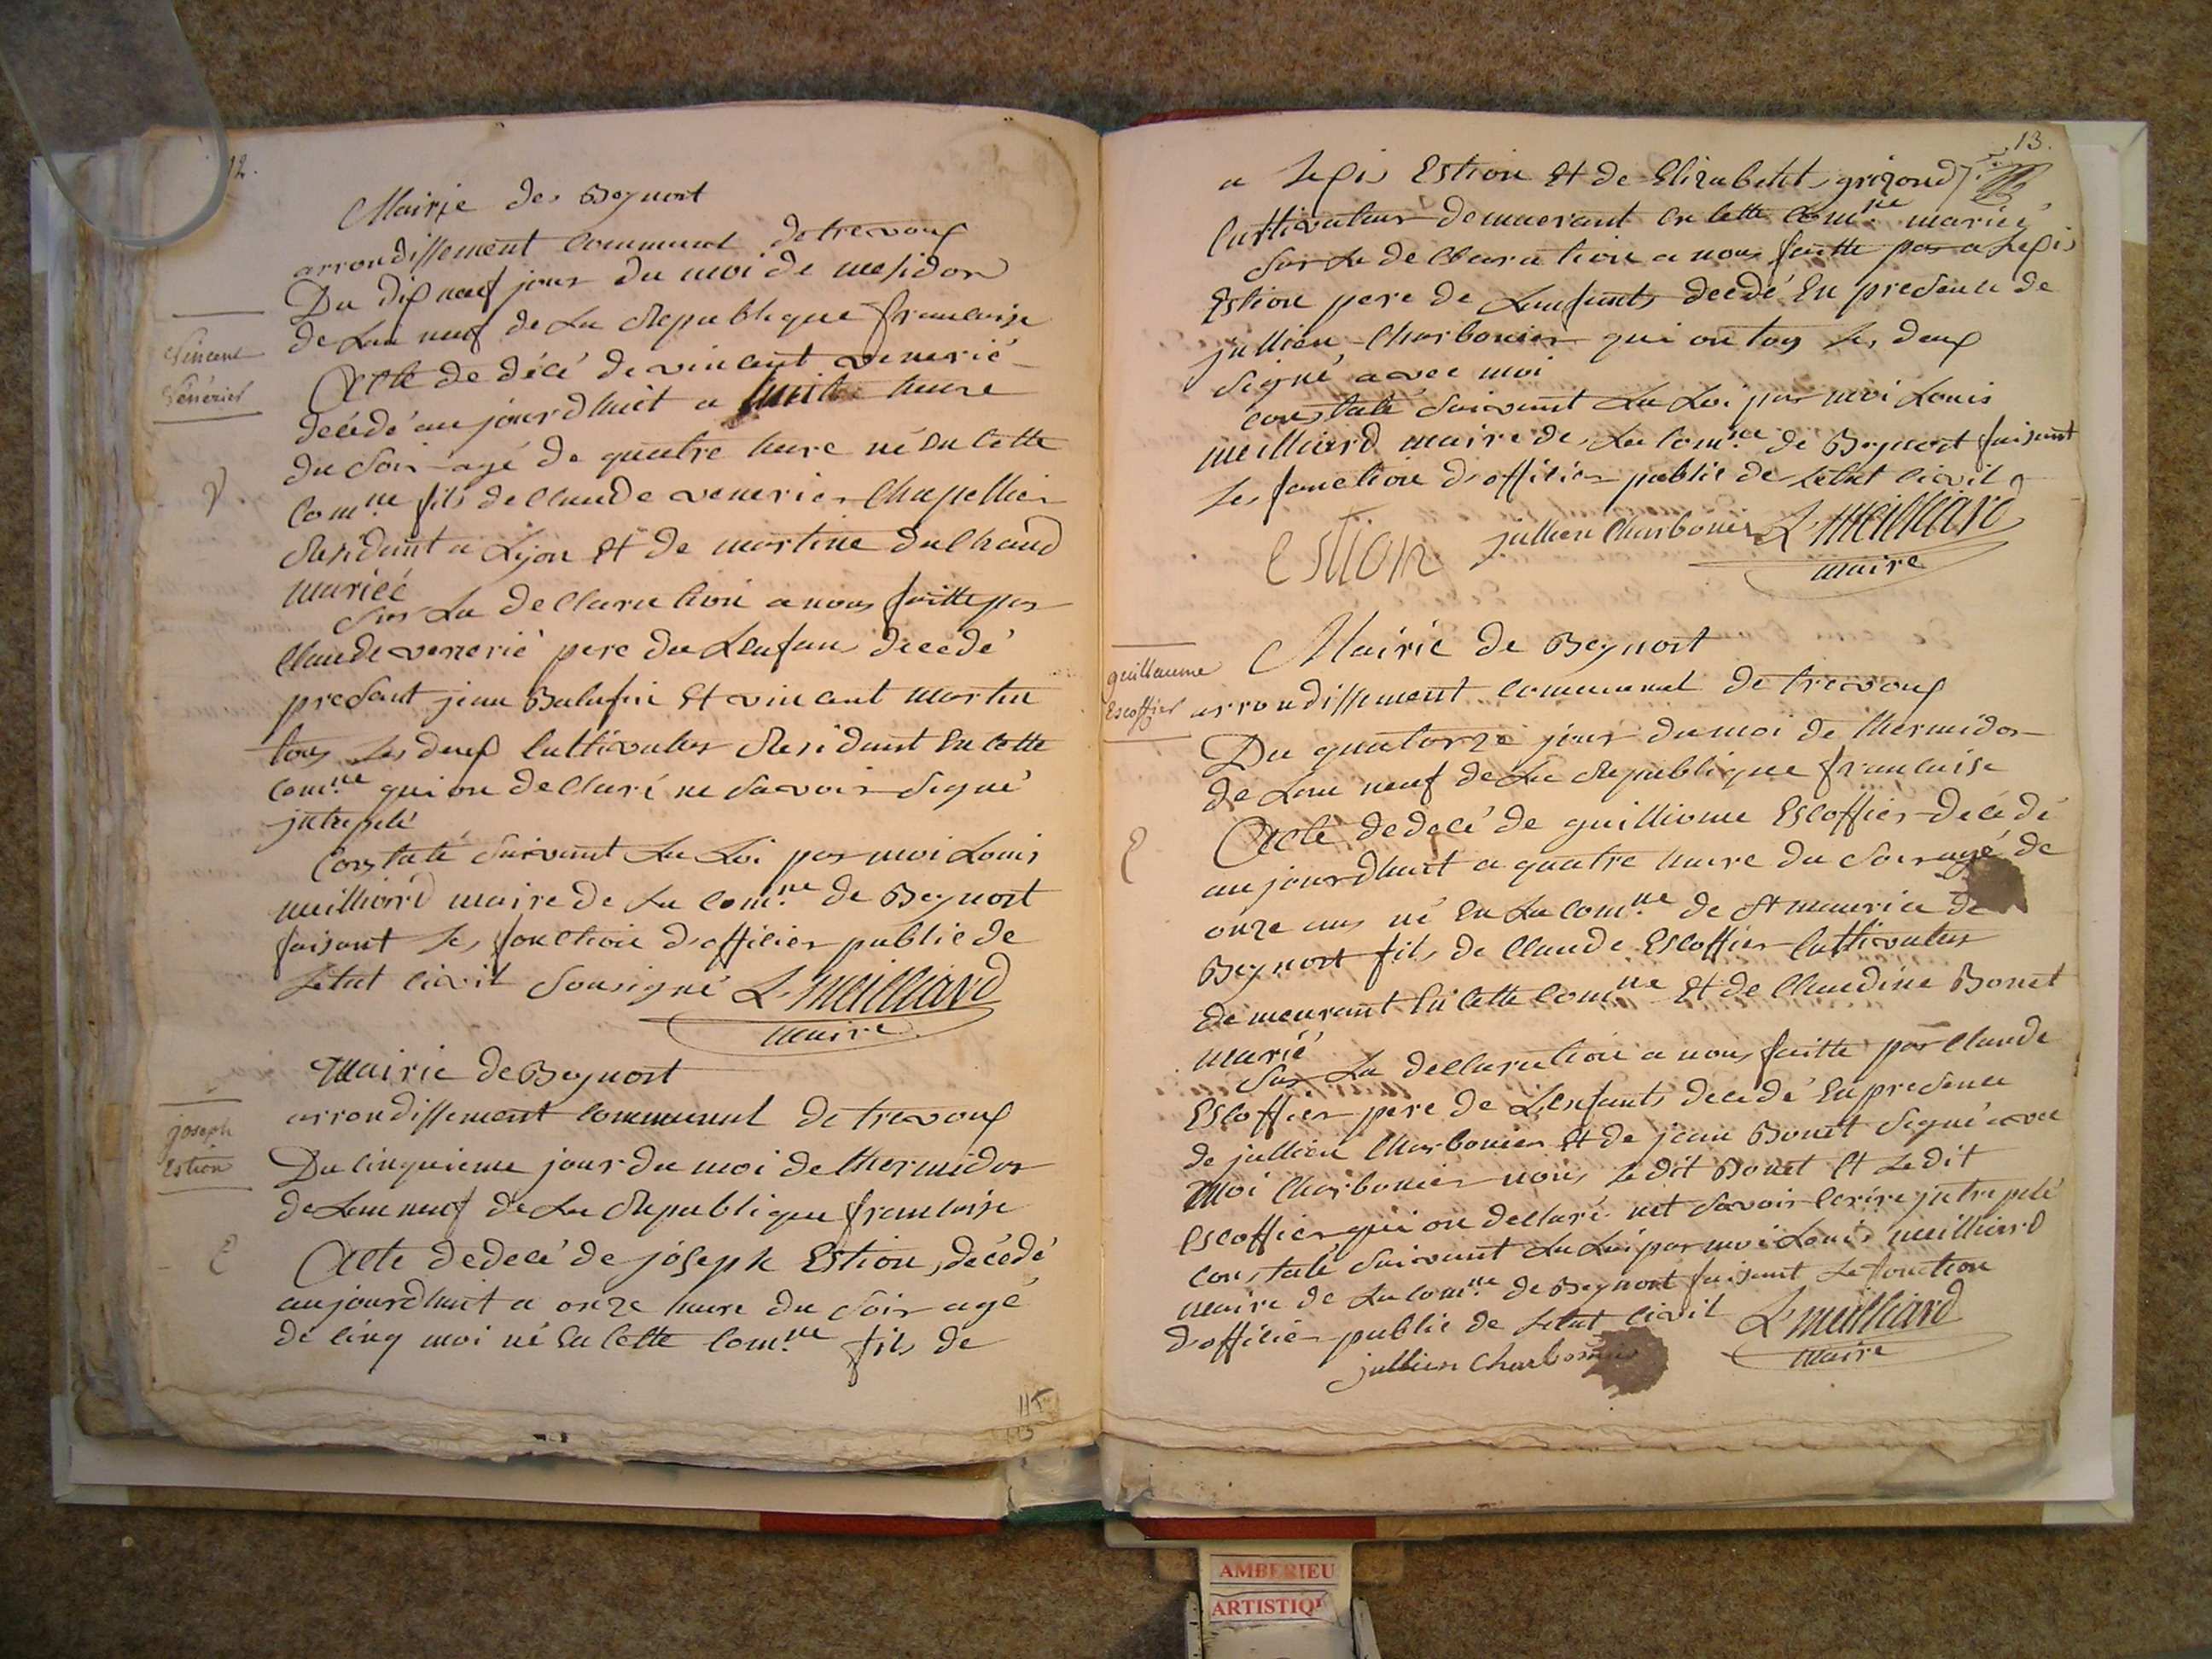 12.
Mairie de Beynost
arrondissement communal de trevoux
Du dix neuf jour du moi de mesidor
de Lan neuf de La Republique francaise
Vincent
Venérier
Acte de décé de vincent venerié
décédé aujourdhuit a huit heure
du soir agé de quatre heure né en cette
Comne fils de Claude venerier Chapellier
Residant a Lyon Et de martine
mariée
Sur La declaration a nous faitte par
Claude venerié pere du Lenfan decedé
presant jean Et vincent martin
tous Les deux Cultivateur Residant En cette
comne qui on declaré ne savoir signé
jntrepelé
Constaté suivant La Loi par moi Louis
meilliard maire de La comne de Beynost
faisant Les fonction dofficier public de
Letat civil sousigné L. meilliard
maire
Mairie de Beynost
arrondissement communal de trevoux
joseph
Estion
Du cinquieme jour du moi de thermidor
de Lan neuf de La Republique francaise
Acte de decé de joseph Estion, décédé
aujourdhuit a onze heure du soir agé
de cinq moi né En cette comne fils de
13.
a Estion Et de Elizabeth grizond
Cultivateur demeurant en cette comne mariée
Sur La declaration a nous faitte par a
Estion pere de Lenfants decdé En presence de
jullien Charbonier qui on tous Les deux
signé avec moi
constaté suivant La Loi par moi Louis
meilliard maire de La comne de Beynost faisant
Les fonction dofficier public de Letat civil
estion jullien Charbonier L. meilliard
maire
guillaume
Escoffier
Mairie de Beynost
arrondissement communal de trevoux
Du quatorze jour du moi de thermidor
de Lan neuf de La Republique francaise
Acte de decé de guilliaume Escoffier decédé
aujourdhuit a quatre heure du soir agé de
onze ans né En La comne de St maurice de
Beynost fils de Claude Escoffier Cultivateur
demeurant En cette comne Et de Claudine Bonet
marié
Sur La declaration a nous faitte par Claude
Escoffier pere de Lenfants decedé En presence
de jullien Charbonier Et de jean Bonet signé avec
moi Charbonier non Ledit Bonet Et Ledit
Escoffier qui on declaré net savoir Ecrire jntrepelé
constaté suivant La Loi par moi Louis meilliard
maire de La comne de Beynost faisant Le fonction
dofficier public de Letat civil L. meilliard
jullien Charbonnier maire
AMBERIEU
ARTISTIQ